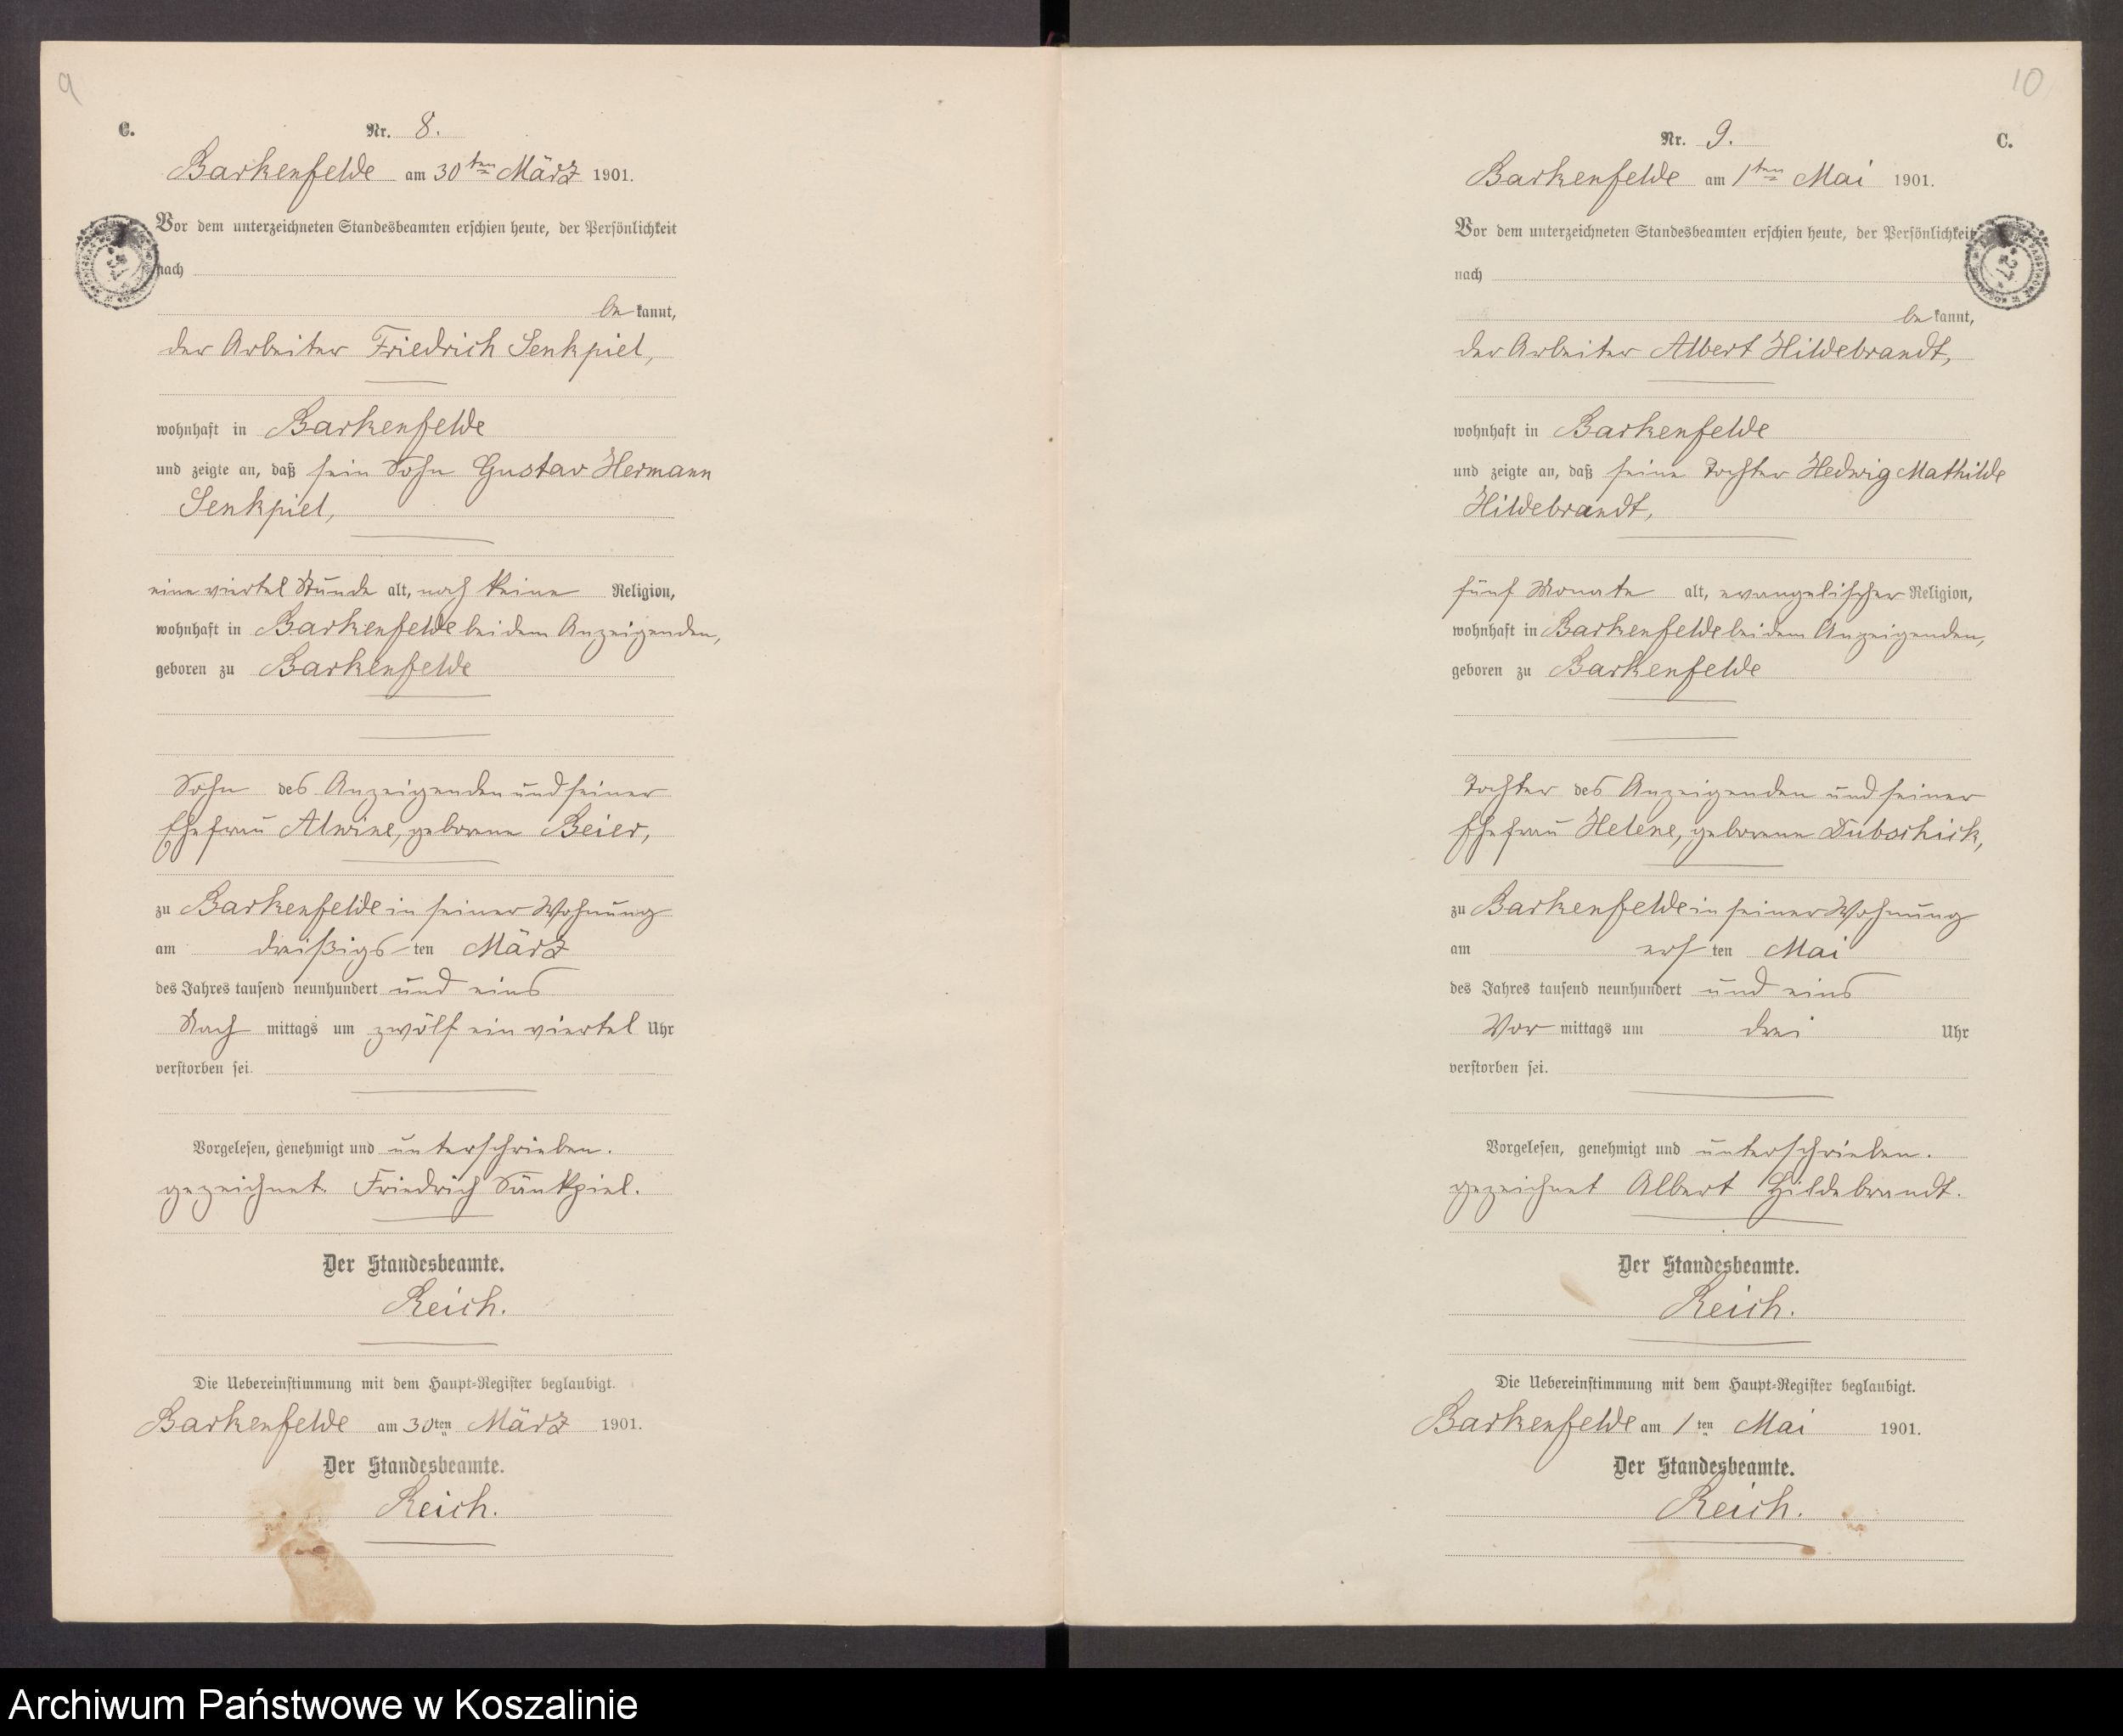 9
C.
Nr. 8.
Barkenfelde am 30ten März 1901.
Vor dem unterzeichneten Standesbeamten erschien heute, der Persönlichkeit
nach
be kannt,
der Arbeiter Friedrich Senkpiel,
wohnhaft in Barkenfelde
und zeigte an, daß sein Sohn Gustav Hermann
Senkpiel,
eine viertel Stunde alt, noch keine Religion,
wohnhaft in Barkenfelde bei dem Anzeigenden,
geboren zu Barkenfelde
Sohn des Anzeigenden und seiner
Ehefrau Alwine, geborene Beier,
zu Barkenfelde in seiner Wohnung
am dreißigs ten März
des Jahres tausend neunhundert und eins
Nach mittags um zwölf ein viertel Uhr
verstorben sei.
Vorgelesen, genehmigt und unterschrieben.
gezeichnet Friedrich Sänkpiel.
Der Standesbeamte.
Reich.
Die Uebereinstimmung mit dem Haupt-Register beglaubigt.
Barkenfelde am 30ten März 1901.
Der Standesbeamte.
Reich.
10
Nr. 9.
C.
Barkenfelde am 1ten Mai 1901.
Vor dem unterzeichneten Standesbeamten erschien heute, der Persönlichkeit
nach
be kannt,
der Arbeiter Albert Hildebrandt,
wohnhaft in Barkenfelde
und zeigte an, daß seine Tochter Hedwig Mathilde
Hildebrandt,
fünf Monate alt, evangelischer Religion,
wohnhaft in Barkenfelde bei dem Anzeigenden,
geboren zu Barkenfelde
Tochter des Anzeigenden und seiner
Ehefrau Helene, geborene
zu Barkenfelde in seiner Wohnung
am ers ten Mai
des Jahres tausend neunhundert und eins
Vor mittags um drei Uhr
verstorben sei.
Vorgelesen, genehmigt und unterschrieben.
gezeichnet Albert Hildebrandt.
Der Standesbeamte.
Reich.
Die Uebereinstimmung mit dem Haupt-Register beglaubigt.
Barkenfelde am 1ten Mai 1901.
Der Standesbeamte.
Reich.
Archiwum Państwowe w Koszalinie